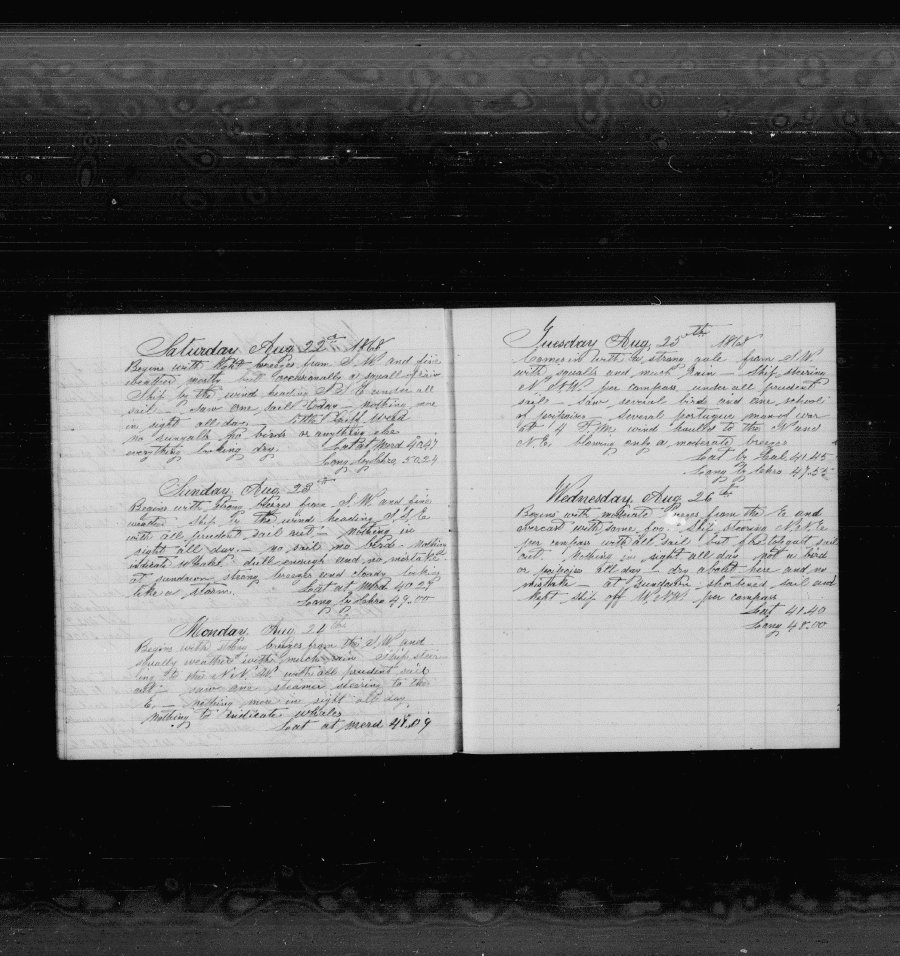 Saturday Aug 22nd 1868
Begins with light breezes from S.W. and fine
weather mostly but occasionally a squall of rain
Ship by the wind heading S.S.E. under all
sail - saw one sail today - nothing more
in sight all day.
no sungulls no birds or anything else
everything looking dry. Lat at Merd 40.47
Long by Chro 50.24
Sunday Aug 23rd
Begins with strong breezes from S.W. and fine
weather ship by the wind heading S.S.E.
with all prudent sail out - nothing in
sight all day - no sail no birds - nothing
indicate whales dull enough and no mistake
at sundown strong breezes and looking
like a storm. Lat at Merd 40.29
Long by Chro 49.00
Monday Aug 24th
Begins with strong breezes from the S.W. and
squally weather with much rain ship steer-
ing to the N.N.W. with all prudent sail
out - saw one steamer steering to the
E. - nothing more in sight all day
nothing to indicate whales
Lat at Merd 41.09
Tuesday Aug 25th 1868
Comes in with a strong gale from S.W.
with squalls and much rain - ship steering
N.N.W. per compass under all prudent
sail - saw several birds and one school
of porpoises - several portugue man of war
at 4 P.M. wind hauled to the N and
N.E. blowing only a moderate breeze
Lat by 41.45
Long by Chro 49.55
Wednesday Aug 26th
Begins with moderate breezes from the E and
overcast with some fog. Ship steering N.N.E.
per compass with all sail but sail
out. Nothing in sight all day not a bird
or porpoise all day - dry about here and no
mistake - at shortened sail and
kept ship off W.N.W. per compass
Lat 41.40
Long 48.00